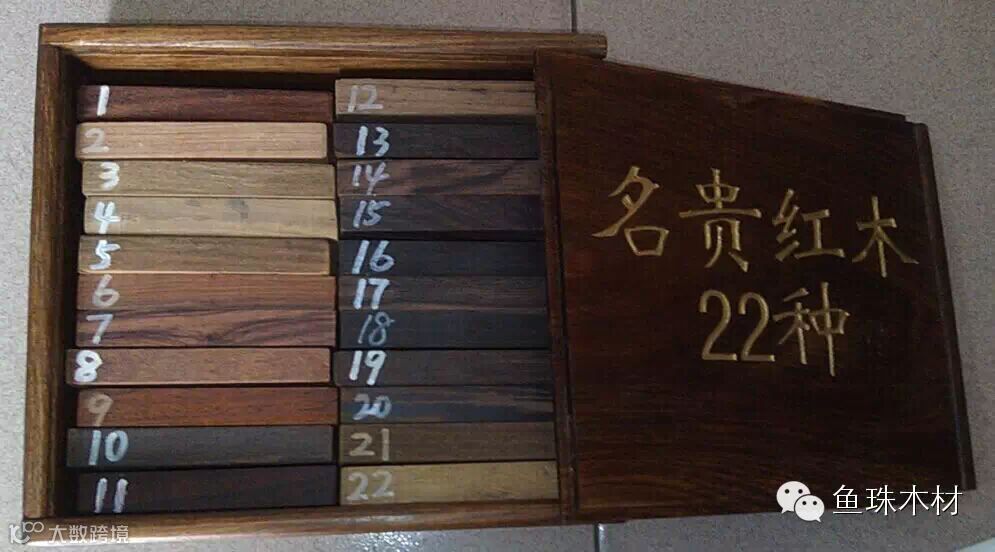 1
2
3
4
5
6
7
8
9
10
11
12
13
14
15
16
17
18
19
20
21
22
名贵红木
22种
鱼珠木材
大数跨境